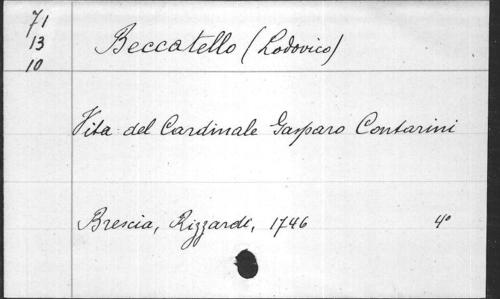 71
13
10
Beccatello (Lodovico)
Vita del Cardinale Gasparo Contarini
Brescia, Rizzardi, 1746 4°